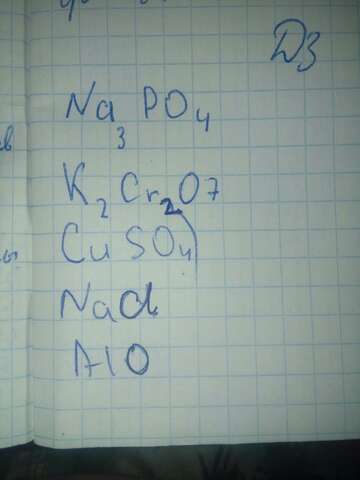 ДЗ
Na₃PO₄
K₂Cr₂O7
CuSO₄
NaCl
AlO